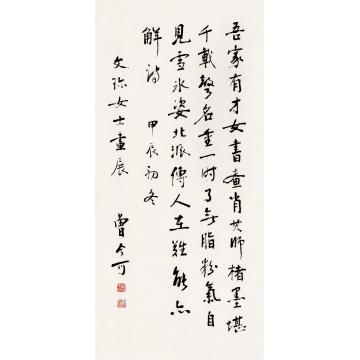 吾家有才女書畫肖其師楮墨堪
千載聲名重一時了無脂粉氣自
見雪冰姿北派傳人在難能亦
解詩 甲辰初冬
文珍女士畫展 曾今可